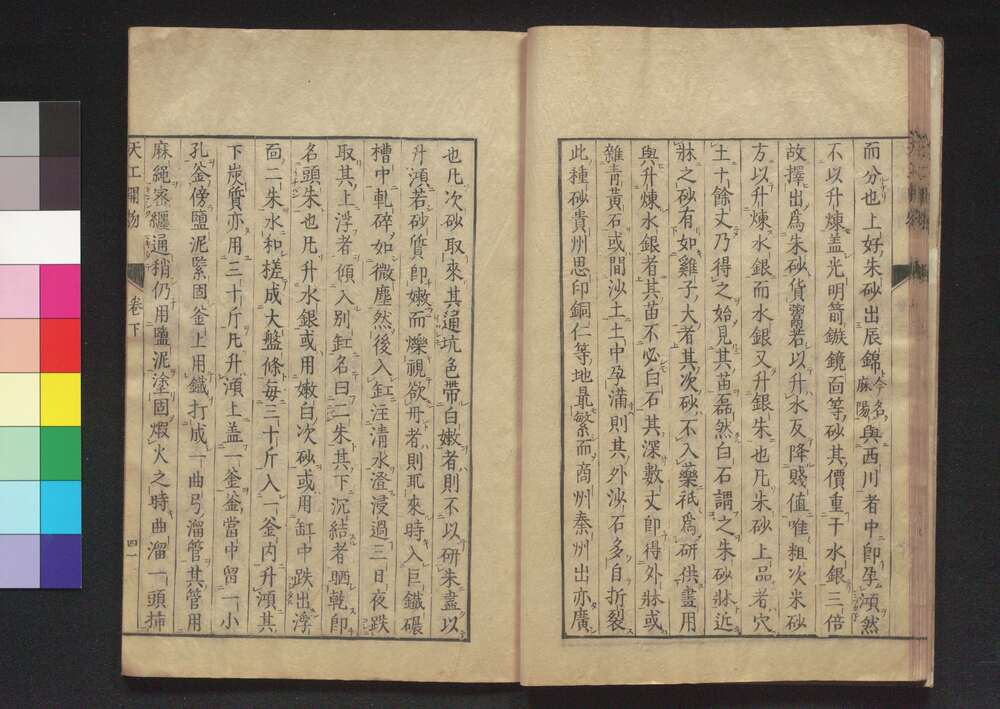 而分也上好朱砂出辰錦今名麻陽與西川者中卽孕澒然
不以升煉盖光明箭鏃鏡面等砂其價重于水銀三倍
故擇出爲朱砂貨鬻若以升水反降賤值唯粗次米砂
方以升煉水銀而水銀又升銀朱也凡朱砂上品者穴
土十餘丈乃得之始見其苗磊然白石謂之朱砂牀近
牀之砂有如雞子大者其次砂不入藥衹爲研供畫用
與升煉水銀者其苗不必白石其深數丈卽得外牀或
雜青黃石或間沙土土中孕滿則其外沙石多自折裂
此種砂貴州思印銅仁等地最繁而商州秦州出亦廣
也凡次砂取來其通坑色帶白嫩者則不以研朱盡以
升澒若砂質卽嫩而爍視欲丹者則取來時入巨鐵碾
槽中軋碎如微塵然後入缸注清水澄浸過三日夜跌
取其上浮者傾入別缸名曰二朱其下沉結者晒乾卽
名頭朱也凡升水銀或用嫩白次砂或用缸中跌出浮
面二朱水和槎成大盤條每三十斤入一釜内升澒其
下炭質亦用三十斤凡升澒上盖一釜釜當中留一小
孔釜傍鹽泥緊固釜上用鐵打成一曲弓溜管其管用
麻繩宻纒通梢仍用鹽泥塗固煆火之時曲溜一頭揷
天工開物
卷下
四一